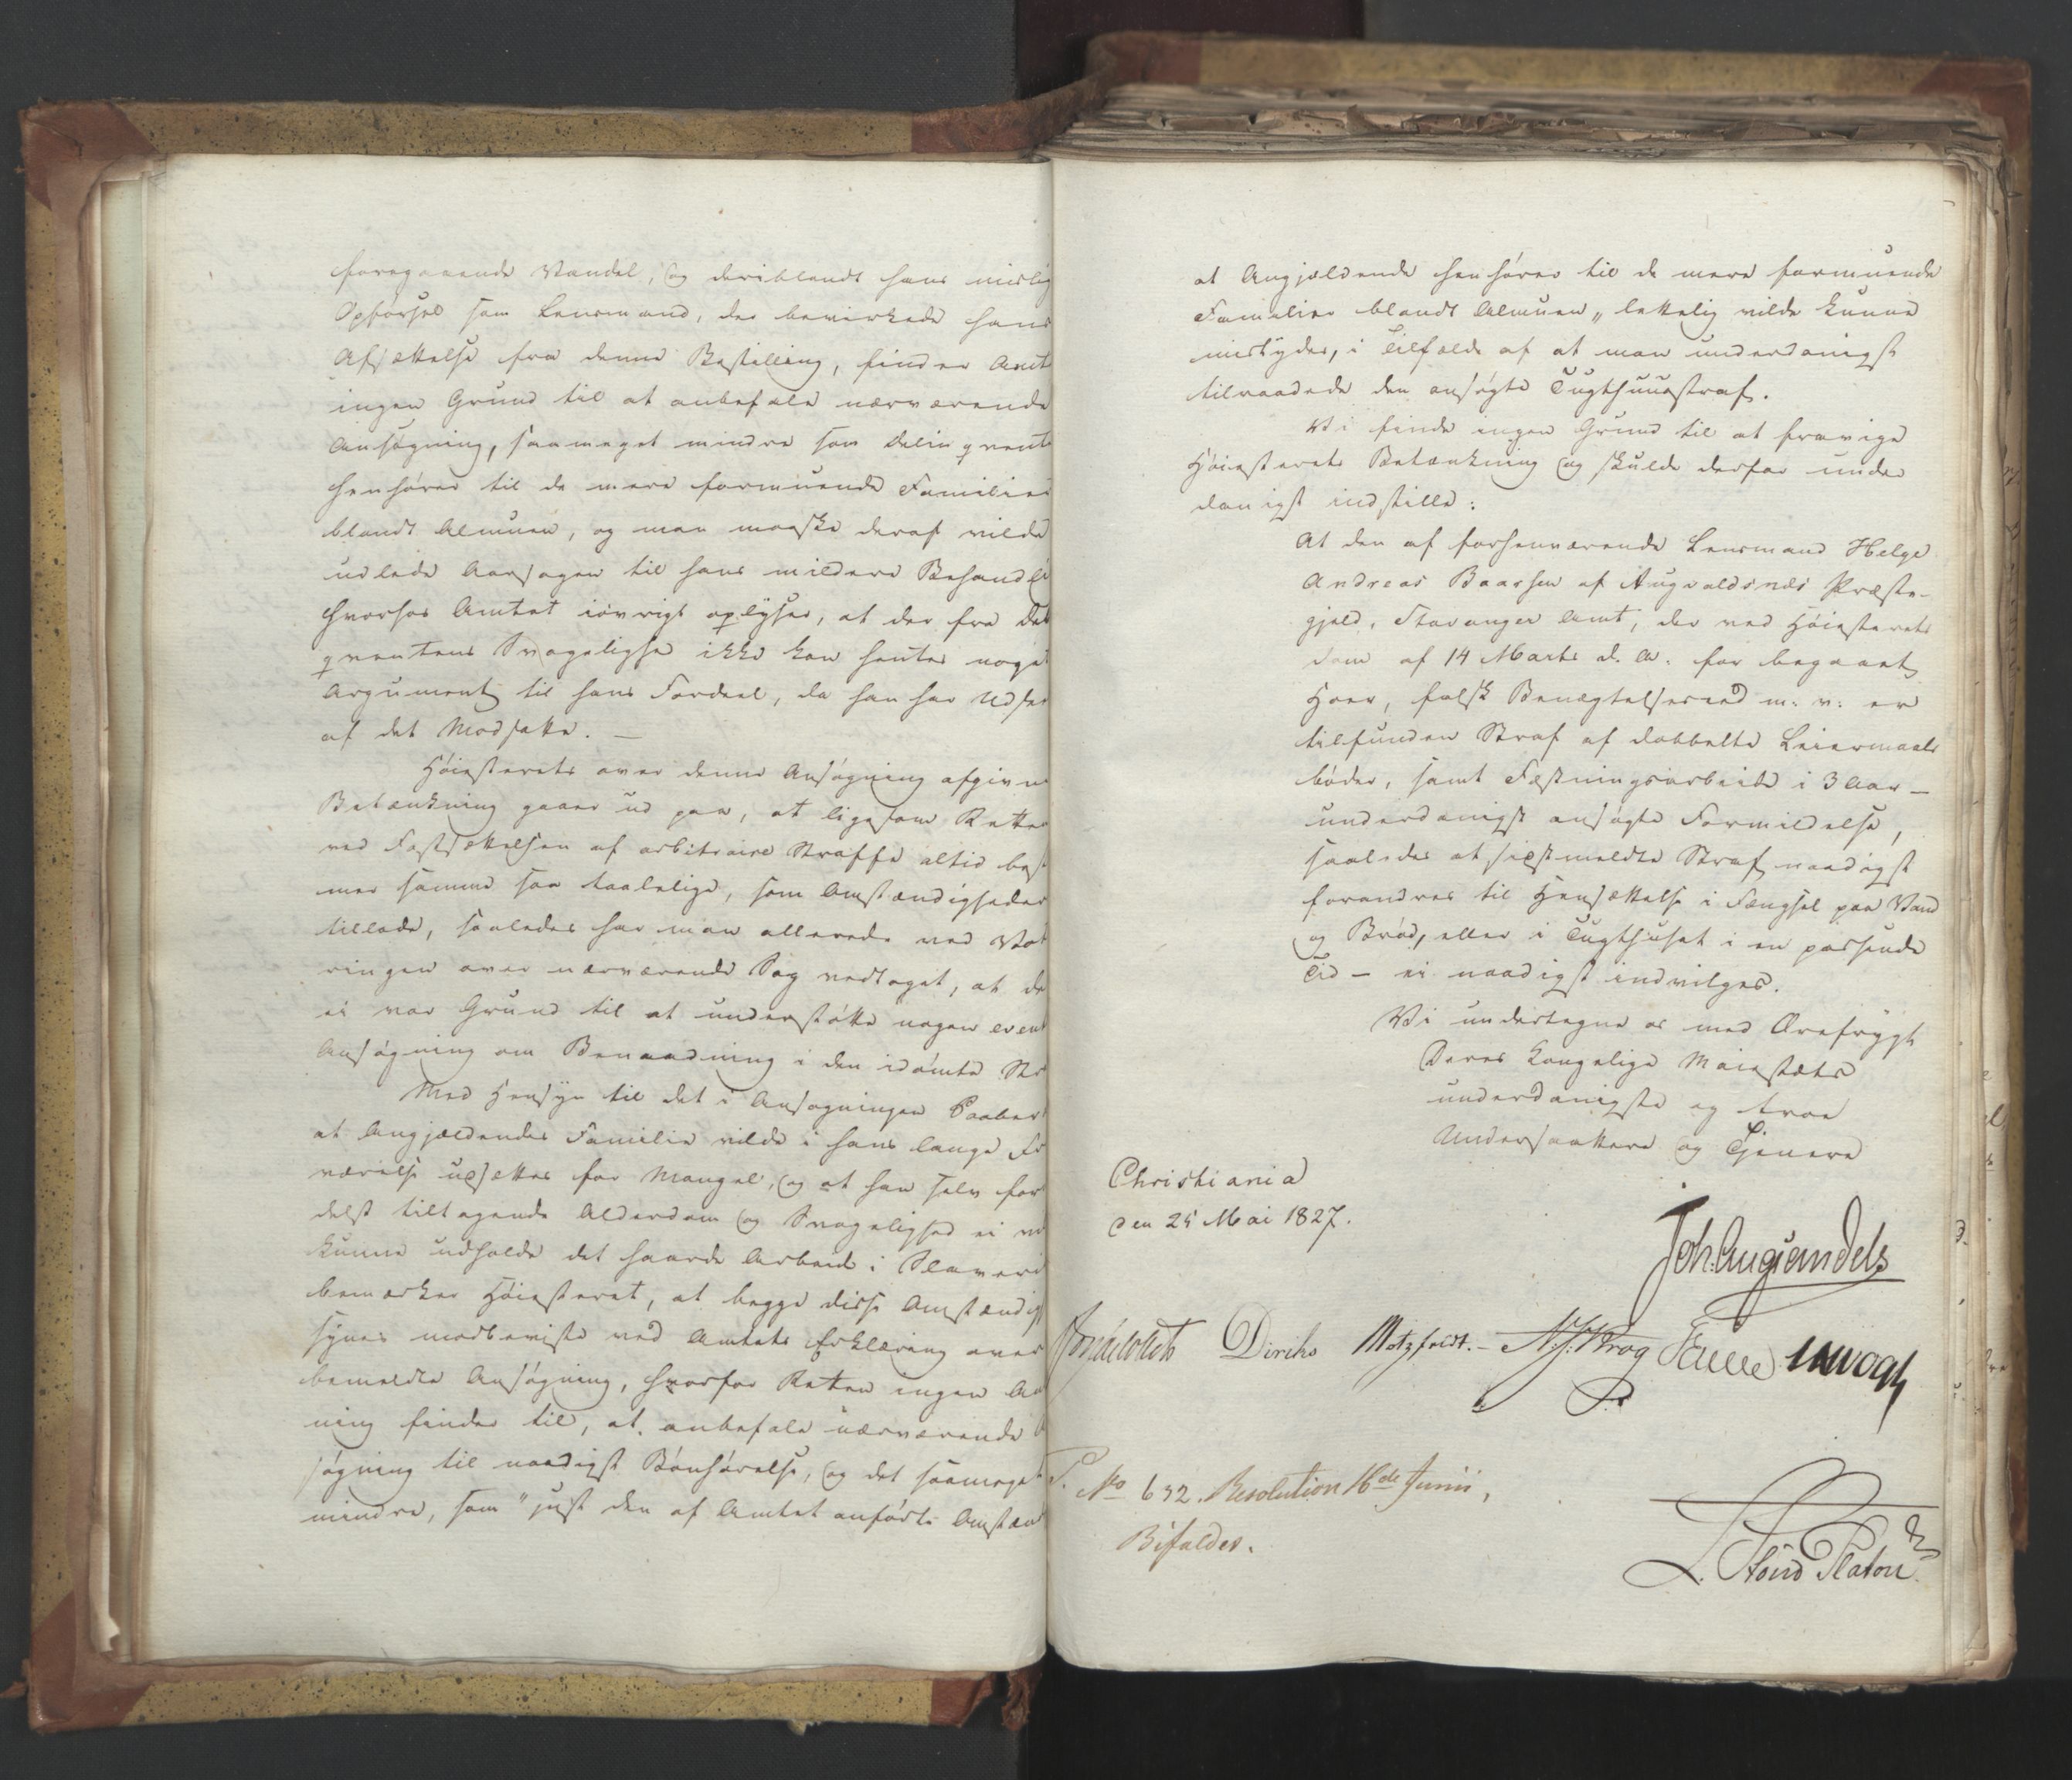 foregaaende Vandel, og deriblandt hans mislig
Opførsel som Lensmand, der bevirkede hans
Afsættelse fra denne Bestilling, finder Amt
ingen Grund til at anbefale nærværende
Ansøgning, saameget mindre som Delinqvent
henhører til de mere formuende Familier
blandt Almuen, og man maaske deraf vilde
udlede Aarsagen til hans mildere Behandl
hvorhos Amtet iøvrigt oplyser, at der fra Del
qventens Svagelighe ikke kan hentes noget
Argument til hans Fordeel, da han har Udse
af det Modsatte. —
Høiesterets over denne Ansøgning afgivn
Betænkning gaaer ud paa, at ligesom Retten
ved Fastsættelsen af arbitraire Straffe altid bes
mer samme saa taalelige, som Omstændigheder
tillade, saaledes har man allerede ved Vot
ringen over nærværende Sag vedtaget, at de
ei var Grund til at understøtte nogen event
Ansøgning om Benaadning i den idømte Str
Med Hensyn til det i Ansøgningen Paaber
at Angjældendes Familie vilde i hans lange Fr
værelse udsættes for Mangel, og at han selv for
delst tiltagende Alderdom og Svagelighed ei vi
kunne udholde det haarde Arbeide i Slaveri
bemærker Høiesteret, at begge disse Omstændig
synes modbeviste ved Amtets Erklæring over
bemeldte Ansøgning, hvorfor Retten ingen An
ning finder til, at anbefale nærværende
søgning til naadigst Bønhørelse, og det saameget
mindre, som "just den af Amtet anførte Omstæn
at Angjældende henhører til de mere formuende
Familier blandt Almuen„ lettelig vilde kunne
mistydes, i Tilfælde af at man underdanigst
tilraadede den ansøgte Tugthuusstraf.
Vi finde ingen Grund til at fravige
Høiesterets Betænkning og skulde derfor under
danigst indstille:
At den af forhenværende Lensmand Helge
Andreas Baarsen af Augvaldsnæs Præste-
gjeld, Stavanger Amt, der ved Høiesterets
Dom af 14 Marts d. A. for begaaet
Hoer, falsk Benægtelsesed m: v: er
tilfunden Straf af dobbelte Leiermaals
bøder, samt Fæstningsarbeide i 3 Aar —
underdanigst ansøgte Formildelse,
saaledes at sidstmeldte Straf naadigst
forandres til Hensættelse i Fængsel paa Vand
og Brød, eller i Tugthuset i en passende
Tid — ei naadigst indvilges.
Vi undertegne os med Ærefrygt
Deres Kongelige Maiestæts
underdanigste og troe
Undersaattere og Tjenere
Christiania
den 25 Mai 1827.
Joh: Aug: Sandels
Diriks Motzfeldt. N. J. Krog Fasting
No 632. Resolution 16de Junii,
Bifaldes.
L. Stoud Platou